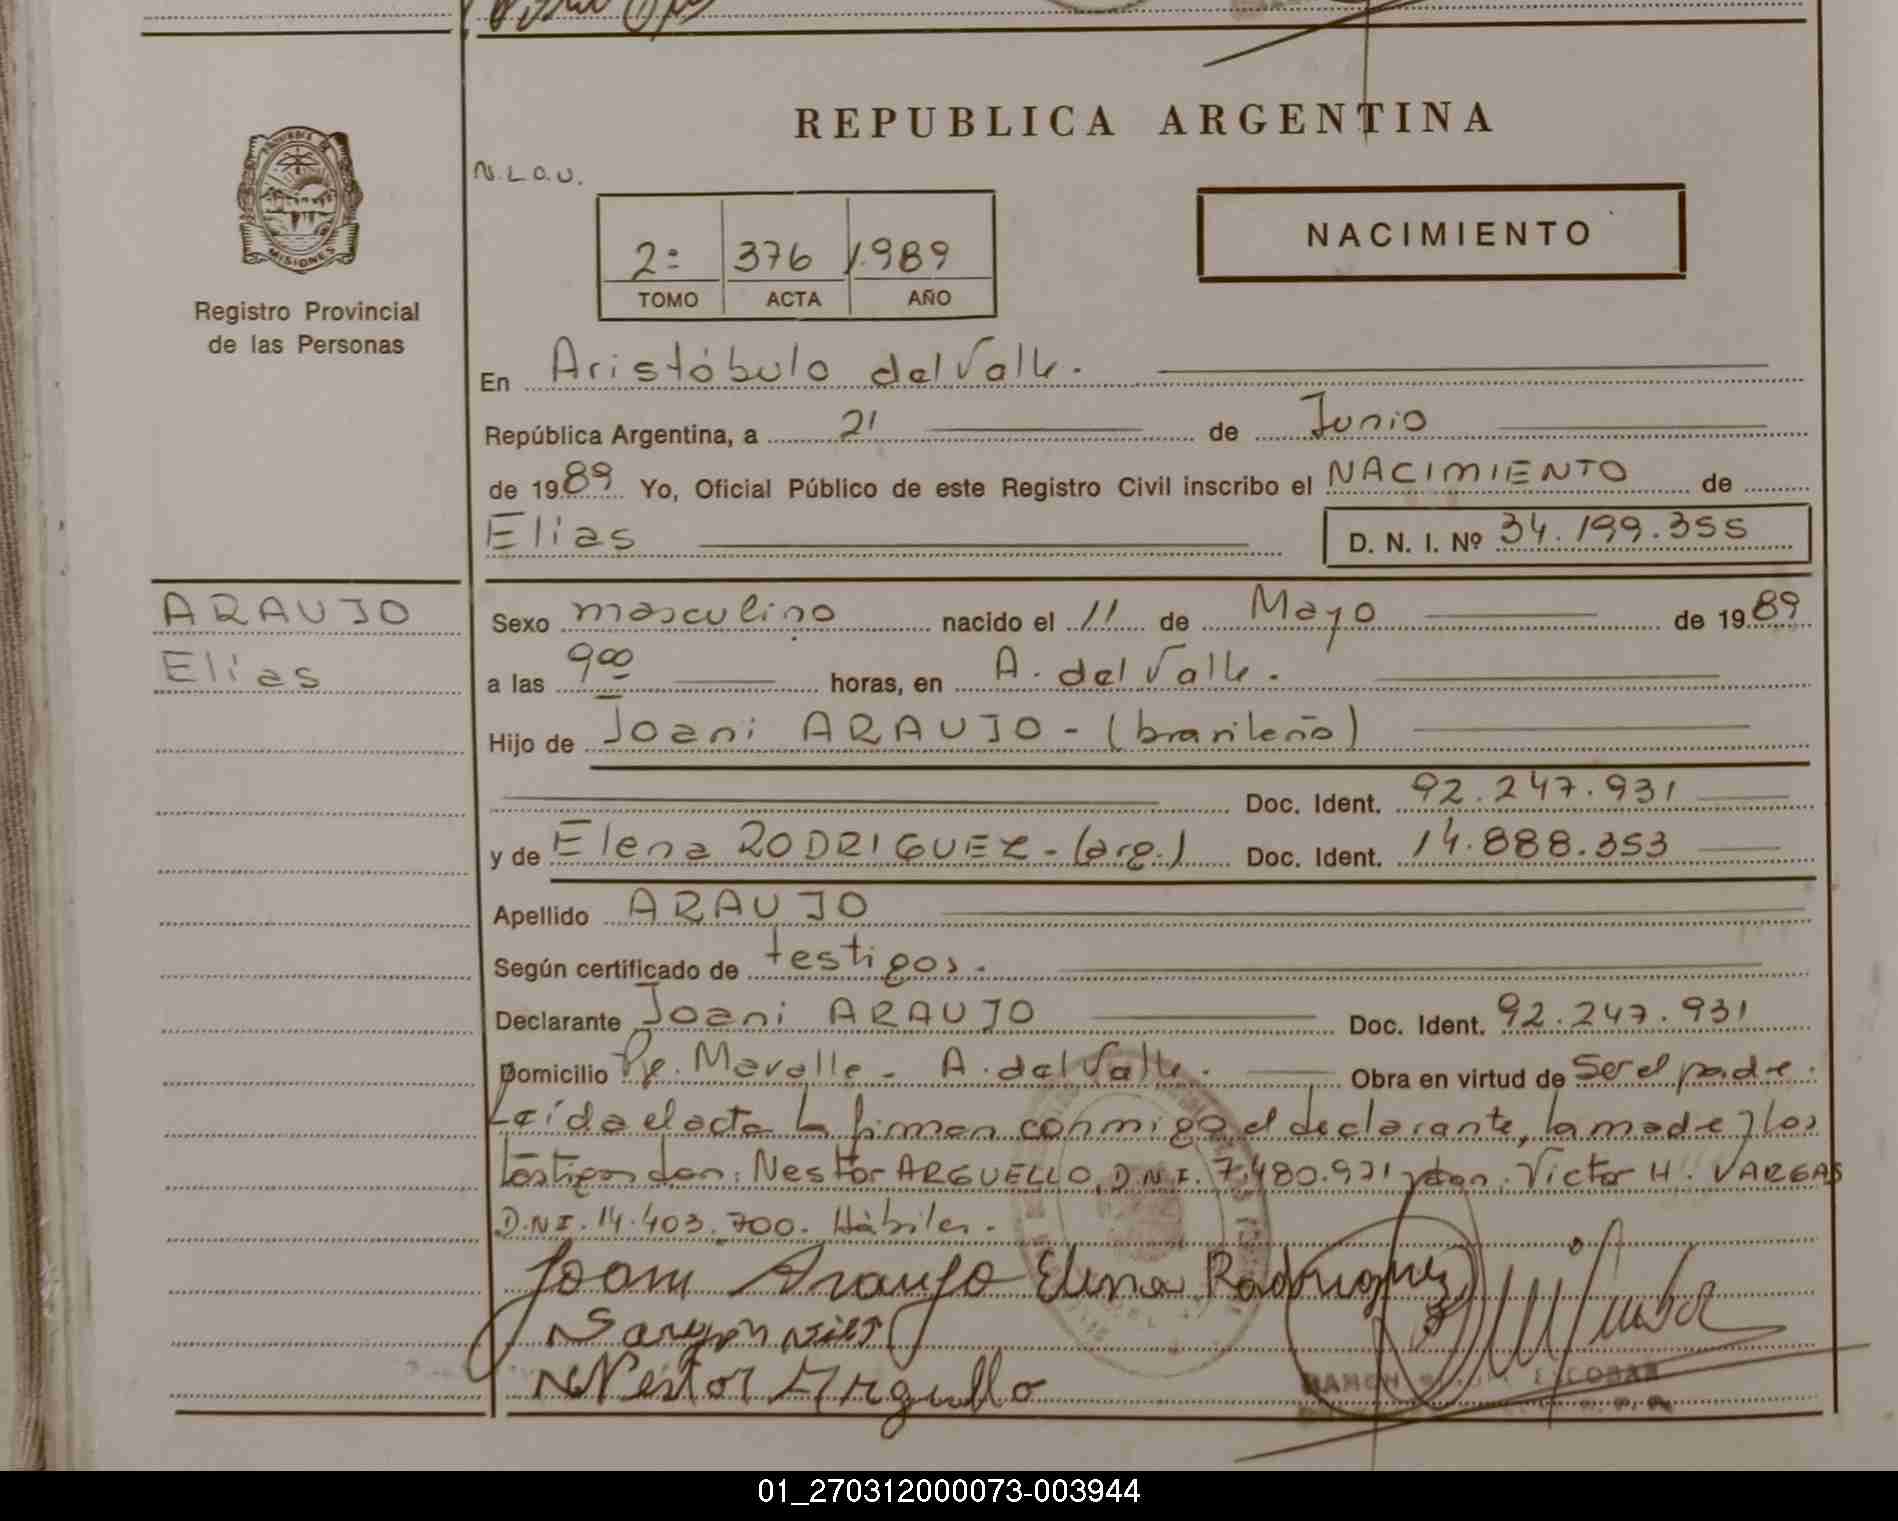 REPUBLICA ARGENTINA
N.L.O.U.
PROVINCIA DE
MISIONES
2º 376 1.989
TOMO ACTA AÑO
NACIMIENTO
Registro Provincial
de las Personas
En Aristóbulo del Valle.
República Argentina, a 21 de Junio
de 1989 Yo, Oficial Público de este Registro Civil inscribo el NACIMIENTO de
Elías D. N. I. Nº 34.199.355
ARAUJO
Elías
Sexo masculino nacido el 11 de Mayo de 1989
a las 9 00 horas, en A. del Valle.
Hijo de Joani ARAUJO - (brasileño)
Doc. Ident. 92.247.931
y de Elena RODRIGUEZ - (arg.) Doc. Ident. 14.888.353
Apellido ARAUJO
Según certificado de testigos.
Declarante Joani ARAUJO Doc. Ident. 92.247.931
Domicilio Pje. Mavalle - A. del Valle. Obra en virtud de Ser el padre.
Leída el acta la firman conmigo el declarante, la madre y los
testigos don: Nestor ARGUELLO, D.N.I. 7.480.921 y don: Victor H. VARGAS
D.N.I. 14.403.700. Hábiles.
Joani Araujo Elena Rodriguez
Nestor Arguello
ESCOBAR
01_270312000073-003944